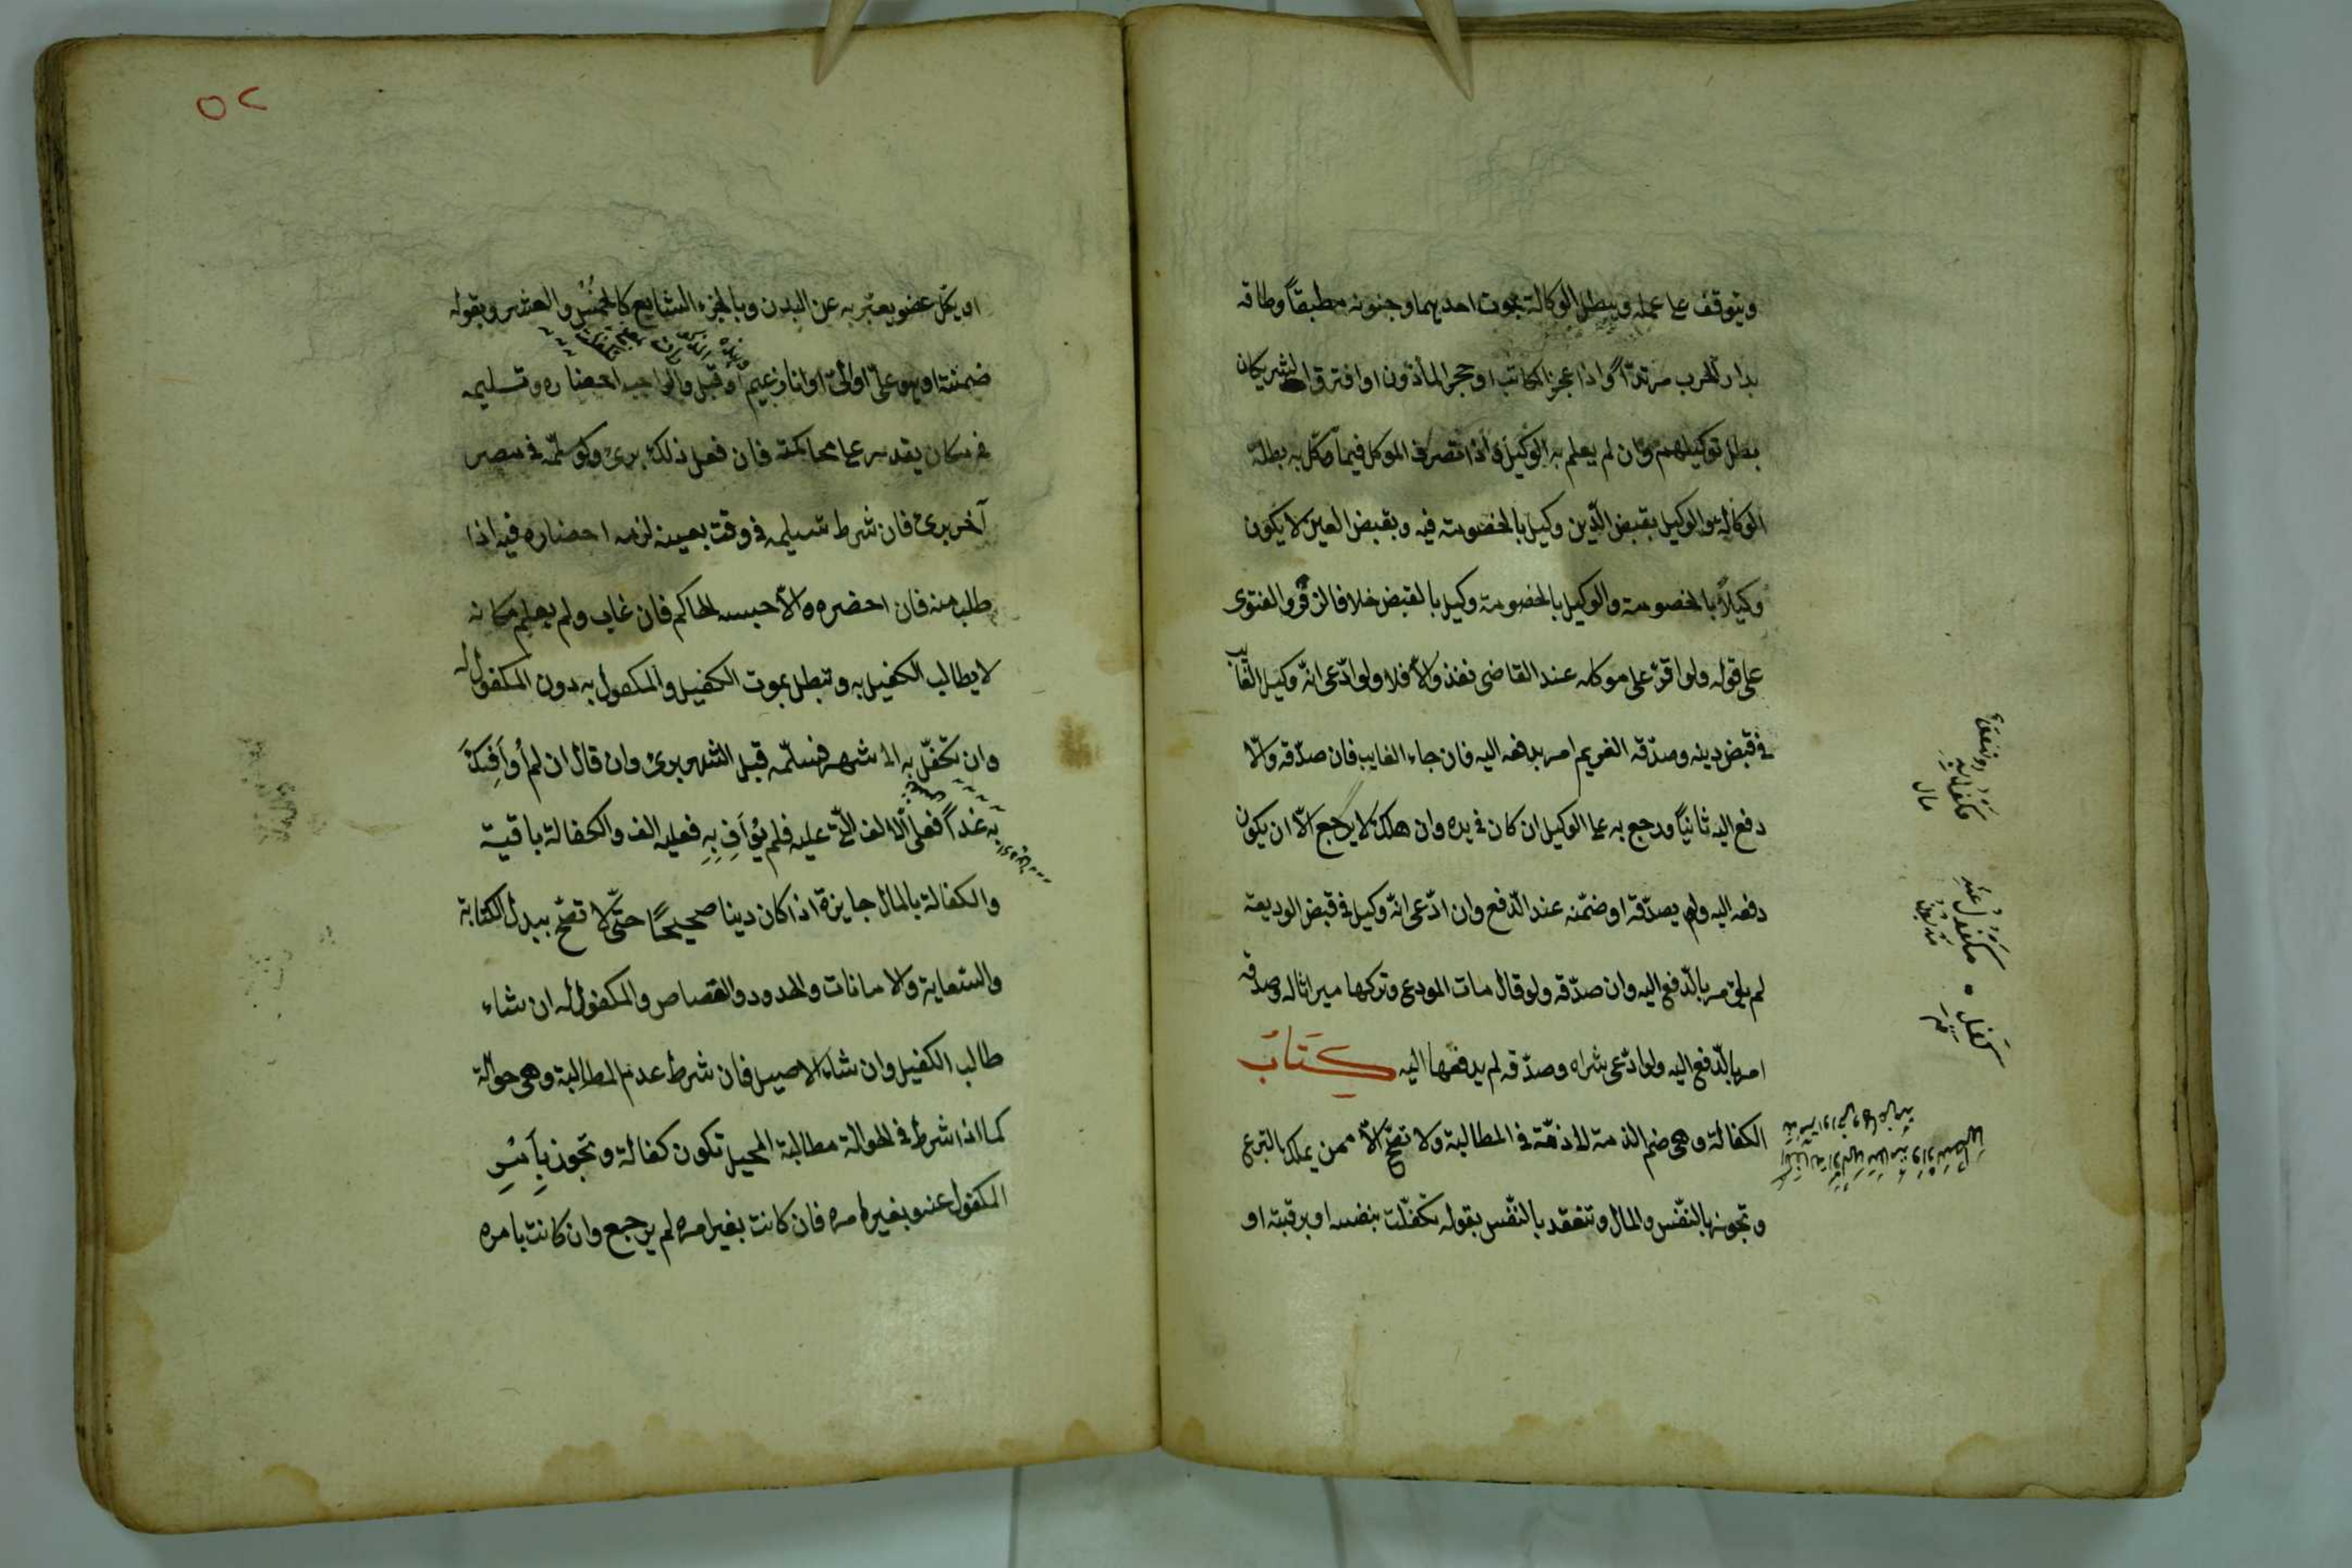 ويتوقف على عمله ويبطل الوكالة بموت احدهما وجنونه مطبقاً ولحاقه
بدار الحرب مرتدّاً واذا عجز المكاتب او حجر المأذون او افترق الشريكان
بطل توكيلهم وان لم يعلم به الوكيل واذا تصرف الموكل فيما وكل به بطلت
الوكالة والوكيل بقبض الدّين وكيل بالخصومة فيه وبقبض العين لا يكون
وكيلاً بالخصومة والوكيل بالخصومة وكيل بالقبض خلافا لزفر والفتوى
على قوله ولو اقرّ على موكله عند القاضى نفذ والّا فلا ولو ادّعى انّه وكيل الغايب
فى قبض دينه وصدّقه الغريم امر بدفعه اليه فان جاء الغايب فان صدّقه والّا
دفع اليه ثانياً ورجع به على الوكيل ان كان فى يده وان هلك لا يرجع الّا ان يكون
دفعه اليه ولم يصدّقه او ضمّنه عند الدّفع وان ادّعى انّه وكيل فى قبض الوديعة
لم يؤمر بالدّفع اليه وان صدّقه ولو قال مات المودع وتركها ميراثا له وصدقه
امر بالدّفع اليه ولو ادّعى شراه وصدّقه لم يدفعها اليه كِتَابُ
الكفالة وهى ضم الذمة الى ذمّة فى المطالبة ولا تصحّ الّا ممن يملك التبرع
وتجوز بالنفّس والمال وتنعقد بالنفّس بقوله تكفّلت بنفسه او برقبته او
مكفول به
مال
مكفول عنه
مديون
كفيل
٥٢
او بكل عضو يعبّر به عن البدن وبالجزء الشايع كالخمُس والعشر وبقوله
ضمنته او هو علىّ او الىّ او انا زعيم او قبيل والواجب احضاره وتسليمه
فى مكان يقدر على محاكمته فان فعل ذلك برئ ولو سلّمه فى مصر
آخر برئ فان شرط تسليمه فى وقت بعينه لزمه احضاره فيه اذا
طلب منه فان احضره والّا حبسه الحاكم فان غاب ولم يعلم مكانه
لا يطالب الكفيل به وتبطل بموت الكفيل والمكفول به دون المكفول له
وان تكفّل به الى شهر فسلّمه قبل الشهر برئ وان قال ان لم أُوَافِكَ
بِه غداً فعلىّ الالف الّتى عليه فلم يُوَافِ بِهِ فعليه الف والكفالة باقية
والكفالة بالمال جايزة اذا كان دينا صحيحًا حتّى لا تصحّ ببدل الكتابة
والسّعاية والامانات والحدود والقصاص والمكفول له ان شاء
طالب الكفيل وان شاء الاصيل فان شرط عدم المطالبة وهى حوالة
كما اذا شرط فى الحوالة مطالبة المحيل تكون كفالة وتجوز بِأَمْرِ
المكفول عنه وبغير امره فان كانت بغير امره لم يرجع وان كانت بامره